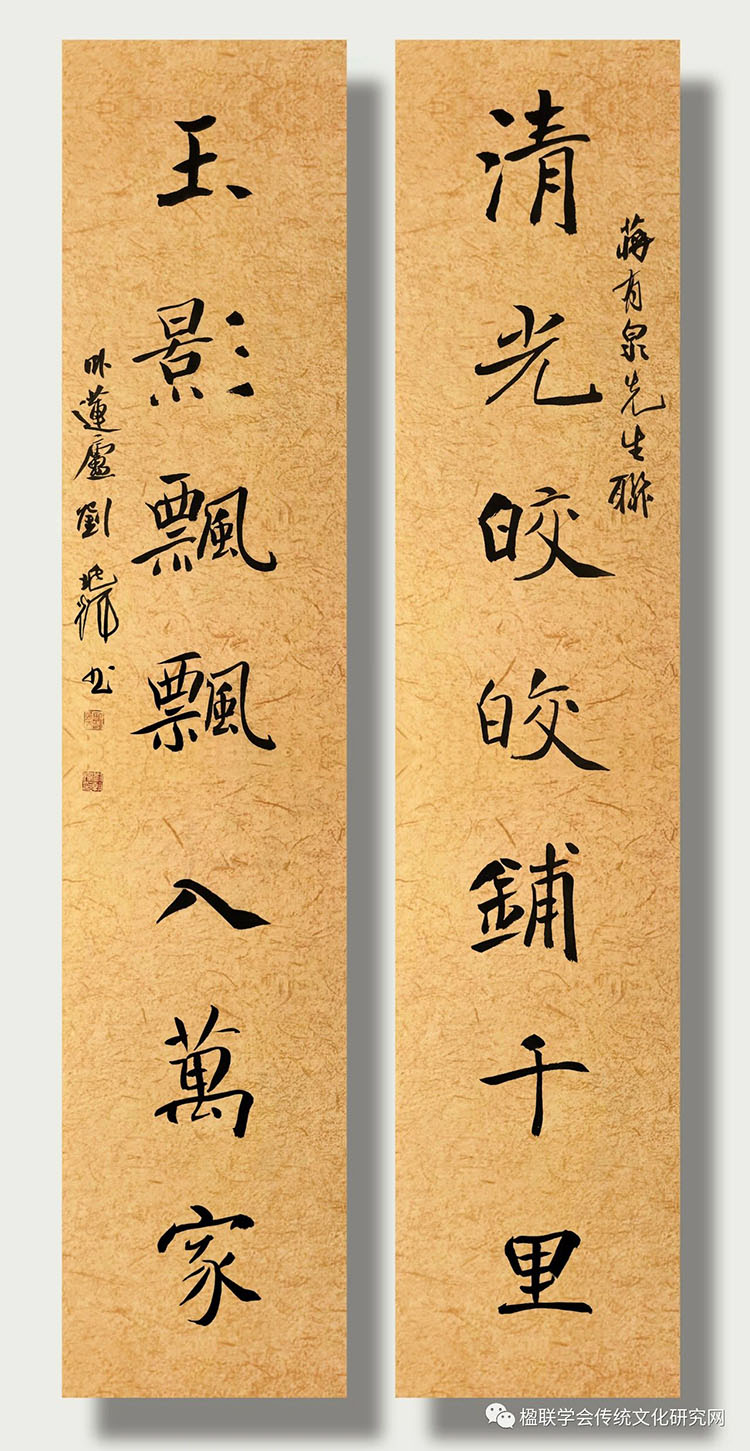 清光皎皎鋪千里
蔣有泉先生聯
玉影飄飄入萬家
卧蓮廬劉
书
楹联学会传统文化研究网